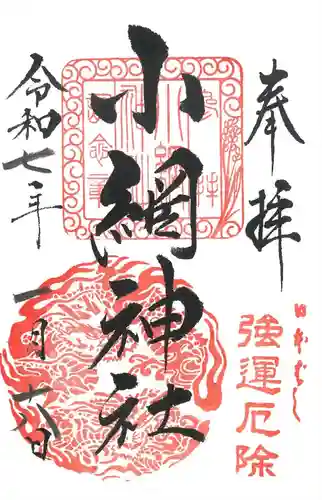 奉拝
日本ばし
強運厄除
小網神社
令和七年
一月六日